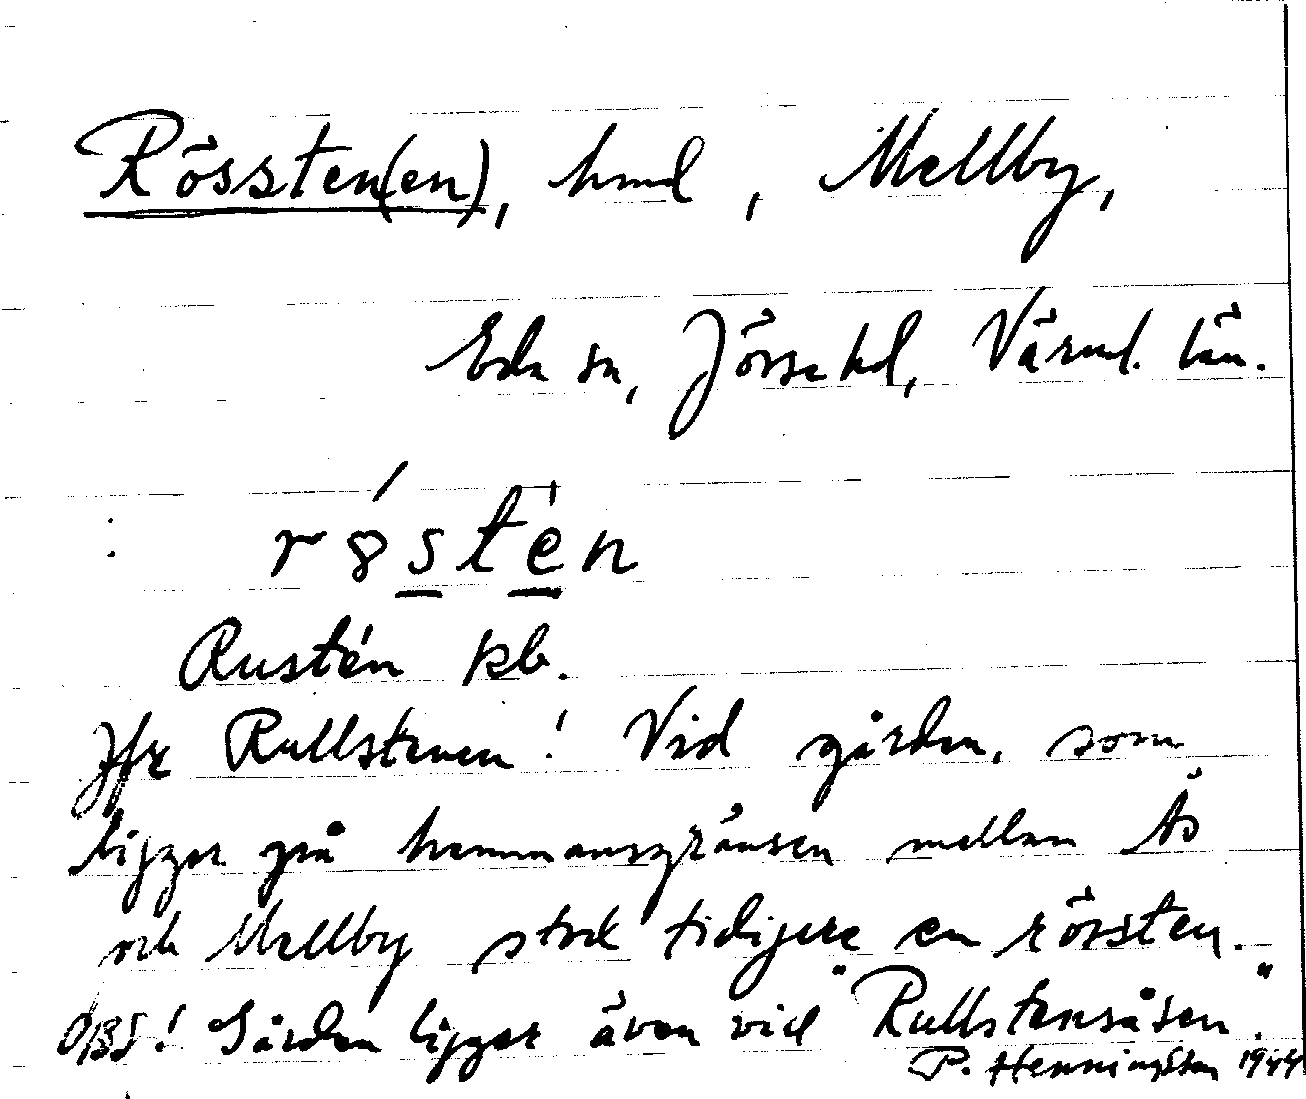 Rössten(en), hmd, Mellby,
Eda sn, Jösse hd, Värml. län.
r8́stėn
Rustén kb.
Jfr Rullstenen! Vid gården, som
ligger på hemmansgränsen mellan Ås
och Mellby stod tidigare en rörsten.
OBS! Gården ligger även vid "Rullstensåsen".
P. Henningsson 1944